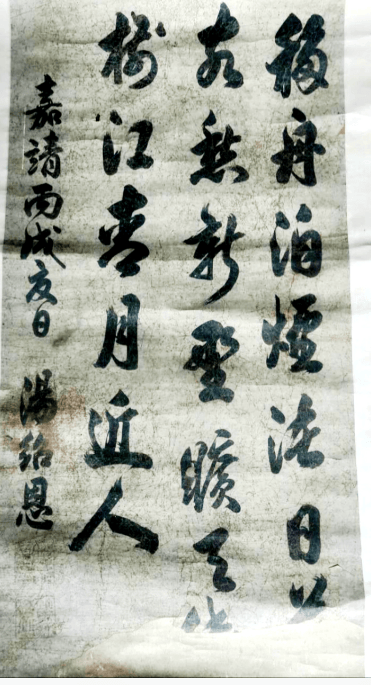 移舟泊煙渚日暮
客愁新野曠天低
樹江清月近人
嘉靖丙戌夏日 湯紹恩